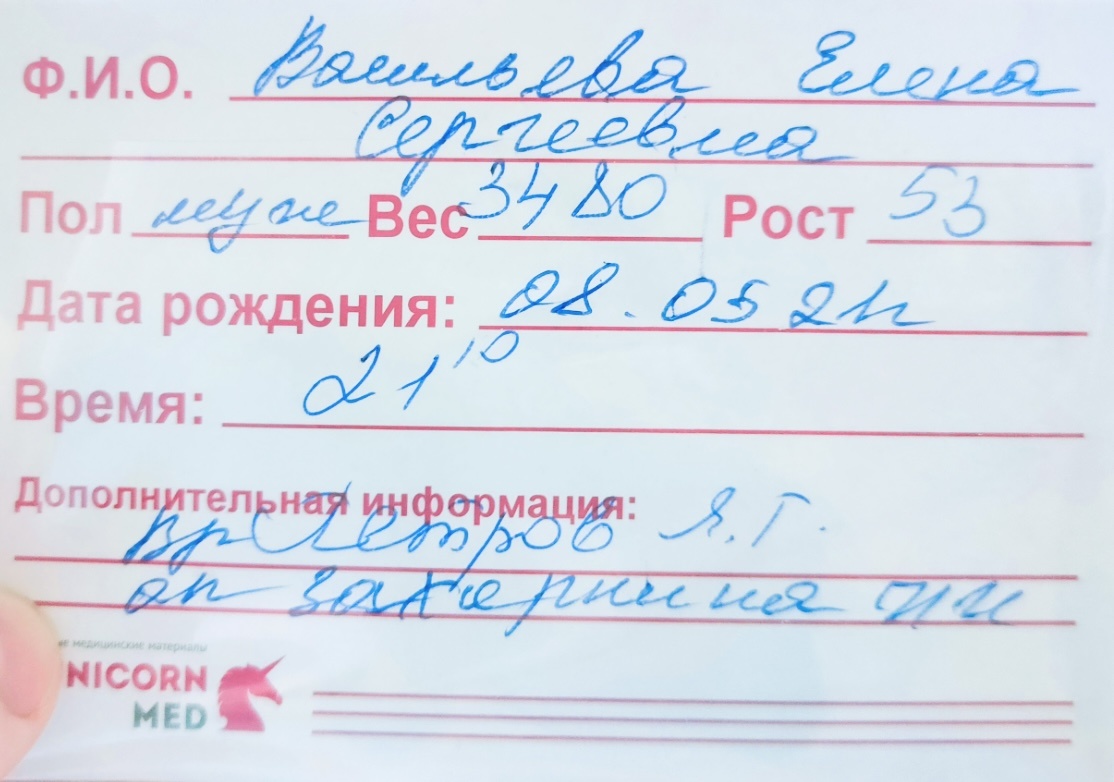 Ф.И.О. Васильева Елена
Сергеевна
Пол муж Вес 3480 Рост 53
Дата рождения: 08.05 21г
Время: 21 10
Дополнительная информация:
вр Петров Я.Г.
ап
медицинские материалы
NICORN
MED